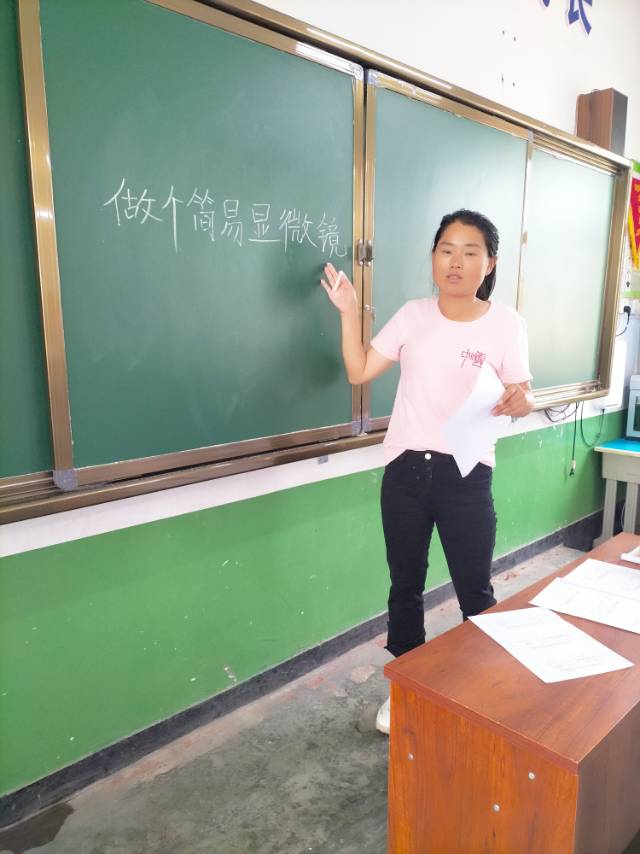 做个简易显微镜
长